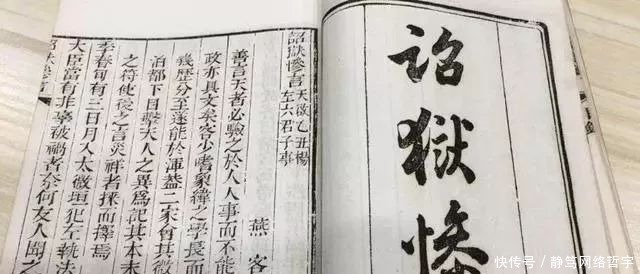 詔獄慘
詔獄慘言天啟乙丑楊
左六君子事
燕客
善言天者必驗之於人人事而不能
政亦具文矣客少嗜象緯之學長而
幾歷分至遂能於渾蓋二家會其微
泊都下目擊天人之異為記其本末
之符使後之言災祥者採而擇焉
季春旬有三日月入太微垣犯左執法
大臣當有非辜被禍者奈何友人聞之
快传号/静笃网络哲宇